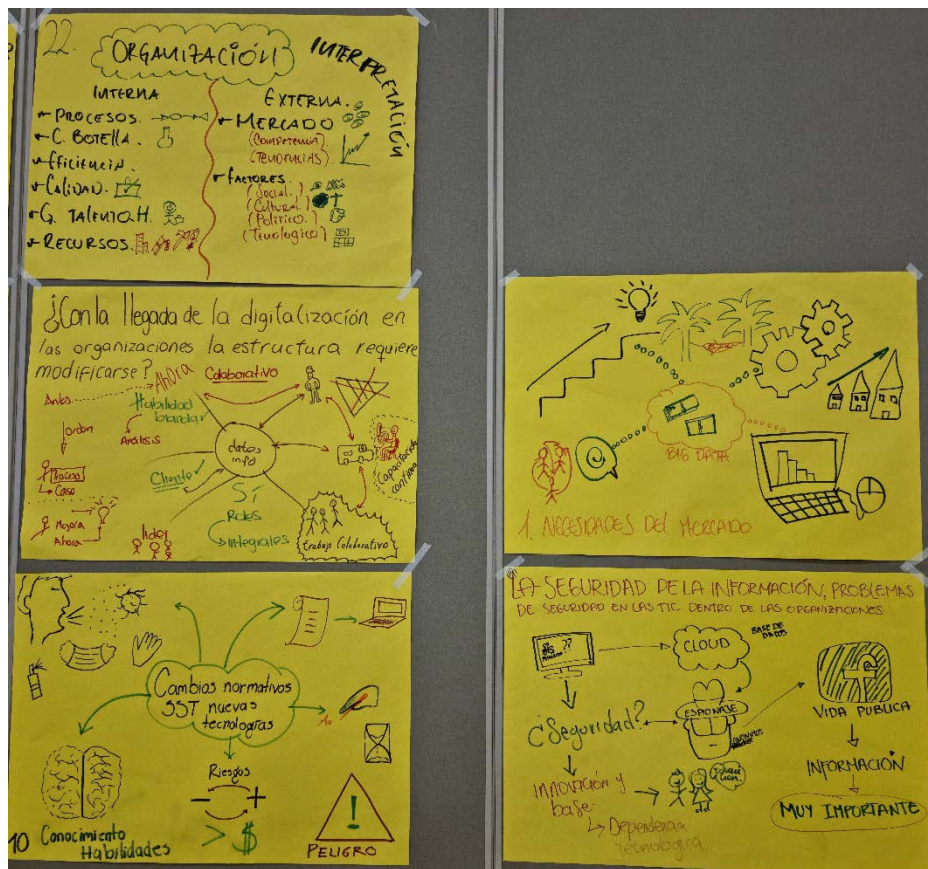 22.
ORGANIZACIÓN
INTERPRETACIÓN
INTERNA
PROCESOS.
C. BOTELLA.
Eficiencia.
CALIDAD.
G. TALENTO.H.
RECURSOS.
EXTERNA.
MERCADO
(Competencia).
(TENDENCIAS)
FACTORES.
(Social.)
(Cultural.)
(Politico.)
(Tecnologico)
¿Con la llegada de la digitalización en
las organizaciones la estructura requiere
modificarse?
Colaborativo
Antes
Ahora
Habilidad
blanda
orden
Análisis
datos
info
Cliente
Proceso
Caso
Sí
Roles
Integrales
Mejora
Ahora
lider
Capacitación
continua
trabajo Colaborativo
Cambios normativos
SST nuevas
tecnologías
Riesgos
- +
> $
PELIGRO
10 Conocimiento
Habilidades
BIG DATA
1. NECESIDADES DEL MERCADO
LA SEGURIDAD DE LA INFORMACIÓN, PROBLEMAS
DE SEGURIDAD EN LAS TIC DENTRO DE LAS ORGANIZACIONES
??
CLOUD
BASE DE
DATOS
¿Seguridad?
ESPIONAJE
f
VIDA PUBLICA
INNOVACIÓN y
base
Dependencia
Tecnologica
INFORMACIÓN
MUY IMPORTANTE